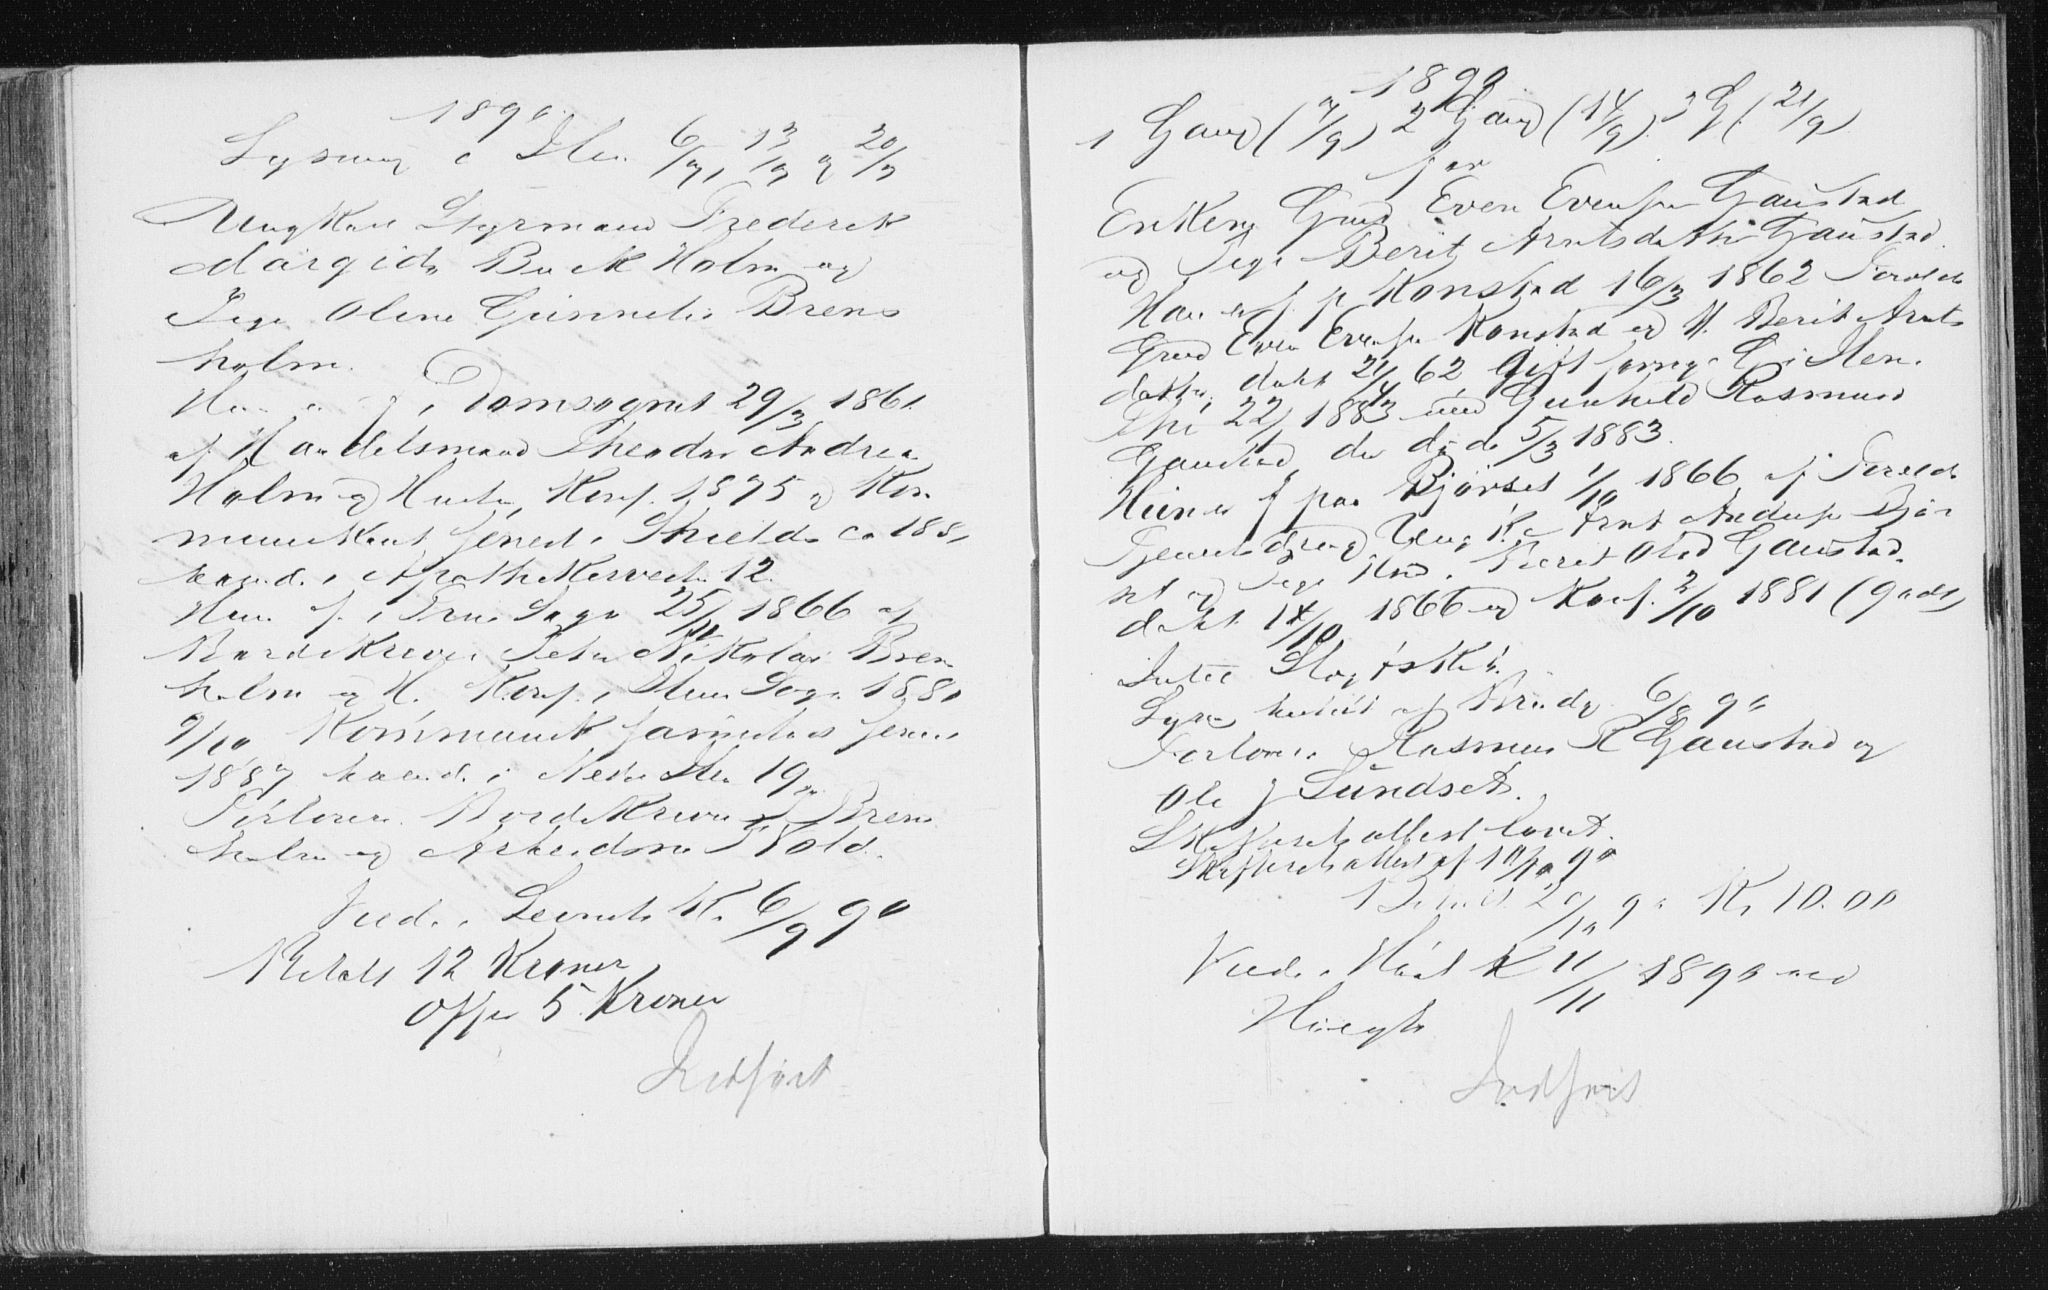 1890
Lysning i Ilen 6/7, 13/7 og 20/7
Ungkarl Styrmand Frederik
Margido Buck Holm og
Pige Oline Gunnelie Brens
holm.
Han f. i Domsognet 29/3 1861
af Handelsmand Theodor Andrea
Holm og Hustru, Konf. 1875 og Kom
municant senest i Shields ca 188
boende i Apothekerveiten 12.
Hun f. i Frue Sogn 25/11 1866 af
Bordskriver Peter Nikolai Brens
holm og H. Konf. i Ilens Sogn 1881
9/10 Kommunicant sammesteds senest
1887 boende i Nedre Ilen 19
Forlovere Bordskriver Brens
holm og Arbeidsm. Wold.
Viede i Ilens K. 6/9 90
Betalt 12 Kroner
Offer 5 Kroner
Indført
1890
1 Gang (7/9) 2 Gang (14/9) 3 G. (21/9)
for
Enkem. Gmd Even Evensen Gaustad
og Pige Berit Arntsdatter Gaustad.
Han er f. p. Konstad 16/3 1862 Foreldre
Gmd Even Evensen Konstad og H. Berit Arnts
datter, døbt 21/4 62 Gift forrige G. i Ilen.
22/ 1883 med Gunhild Rasmusd
Gaustad der døde 5/3 1883.
Hun er f. paa Bjørset 1/10 1866 af Foreldre
Tjenestedreng Ungk. Arnt Andersen Bjør
set og Pige Berit Olsd Gaustad.
døbt 14/10 1866 og Konf. 2/10 1881 (godt)
Intet Slægtsk.
Lysn. bestilt af Brudg. 6/8 90
Forlovere Rasmus R Gaustad og
Ole J Sundset.
Skifteretsattest lovet.
Skifteretsattest af 10/10 90
Betalt 20/10 90 Kr 10.00
Viede i K 11/11 1890 ved
Høegh
Indført